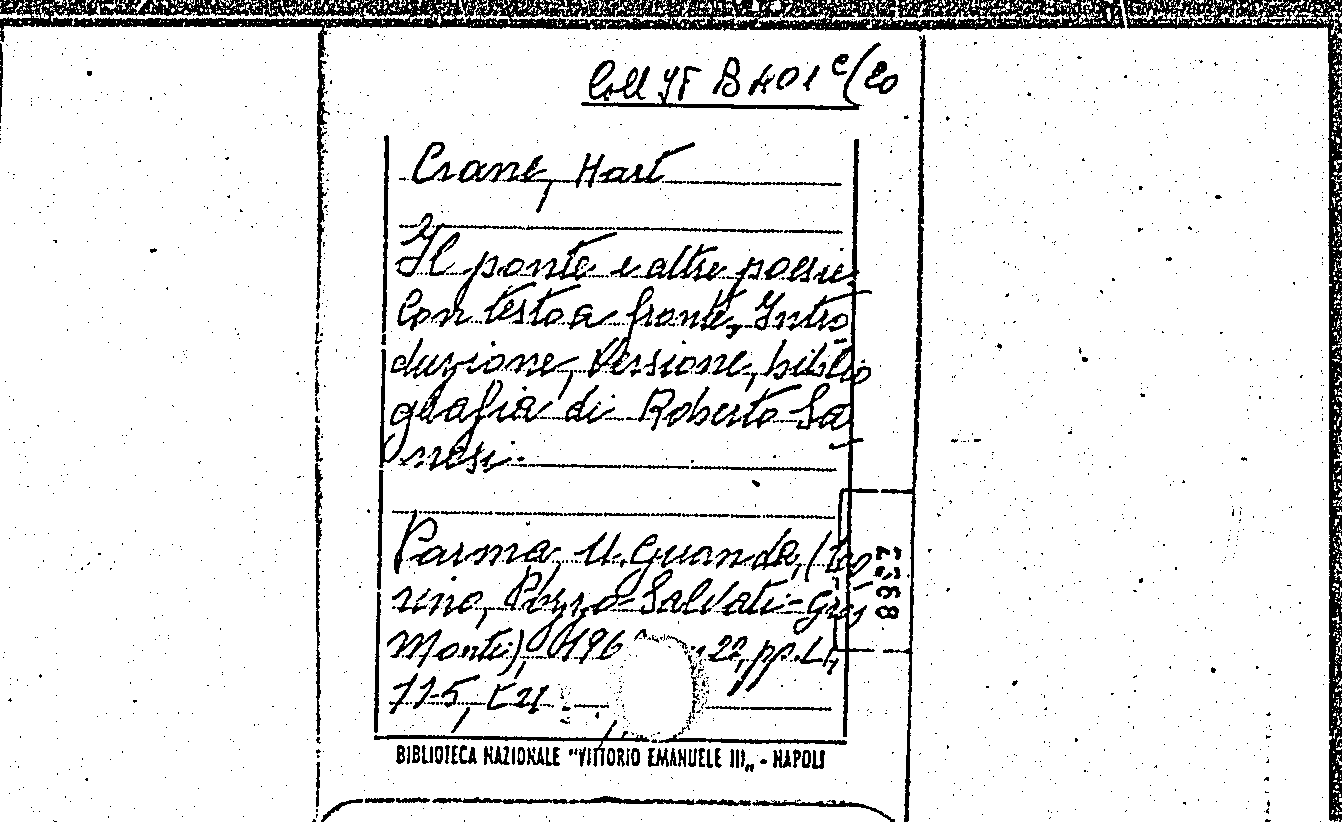 Coll. YF B 401 c/20
Crane, Hart
Il ponte e altre poesie
Con testo a fronte, Intro
duzione, Versione, biblio
grafia di Roberto Sa
nesi.
Parma, U. Guanda, (To
rino, Pozzo-Salvati-Gros
Monti), 196 22, pp. LI,
BIBLIOTECA NAZIONALE "VITTORIO EMANUELE III„ - NAPOLI